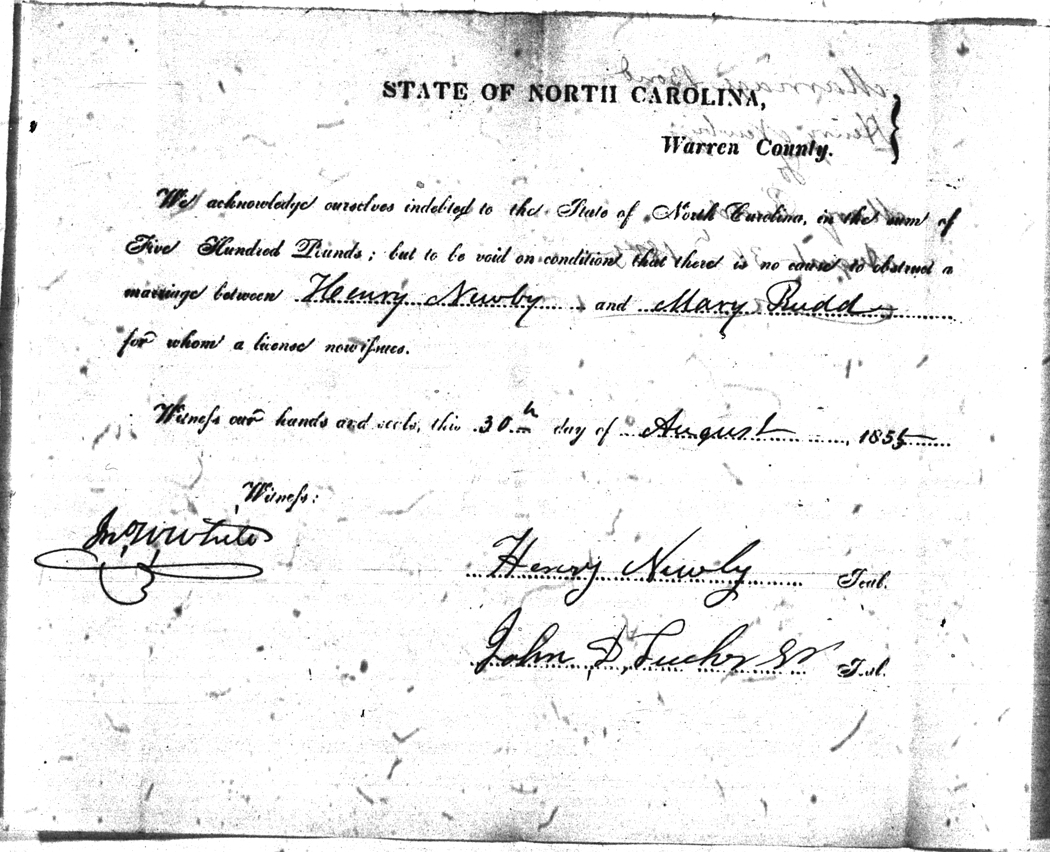 STATE OF NORTH CAROLINA,
Warren County.
We acknowledge ourselves indebted to the State of North Carolina, in the sum of
Five Hundred Pounds; but to be void on condition that there is no cause to obstruct a
marriage between Henry Newby and Mary Rudd
for whom a license now issues.
Witness our hands and seals, this 30th day of August, 1855
Witness:
Jno W White
Henry Newby Seal.
John D, Tucker Seal.